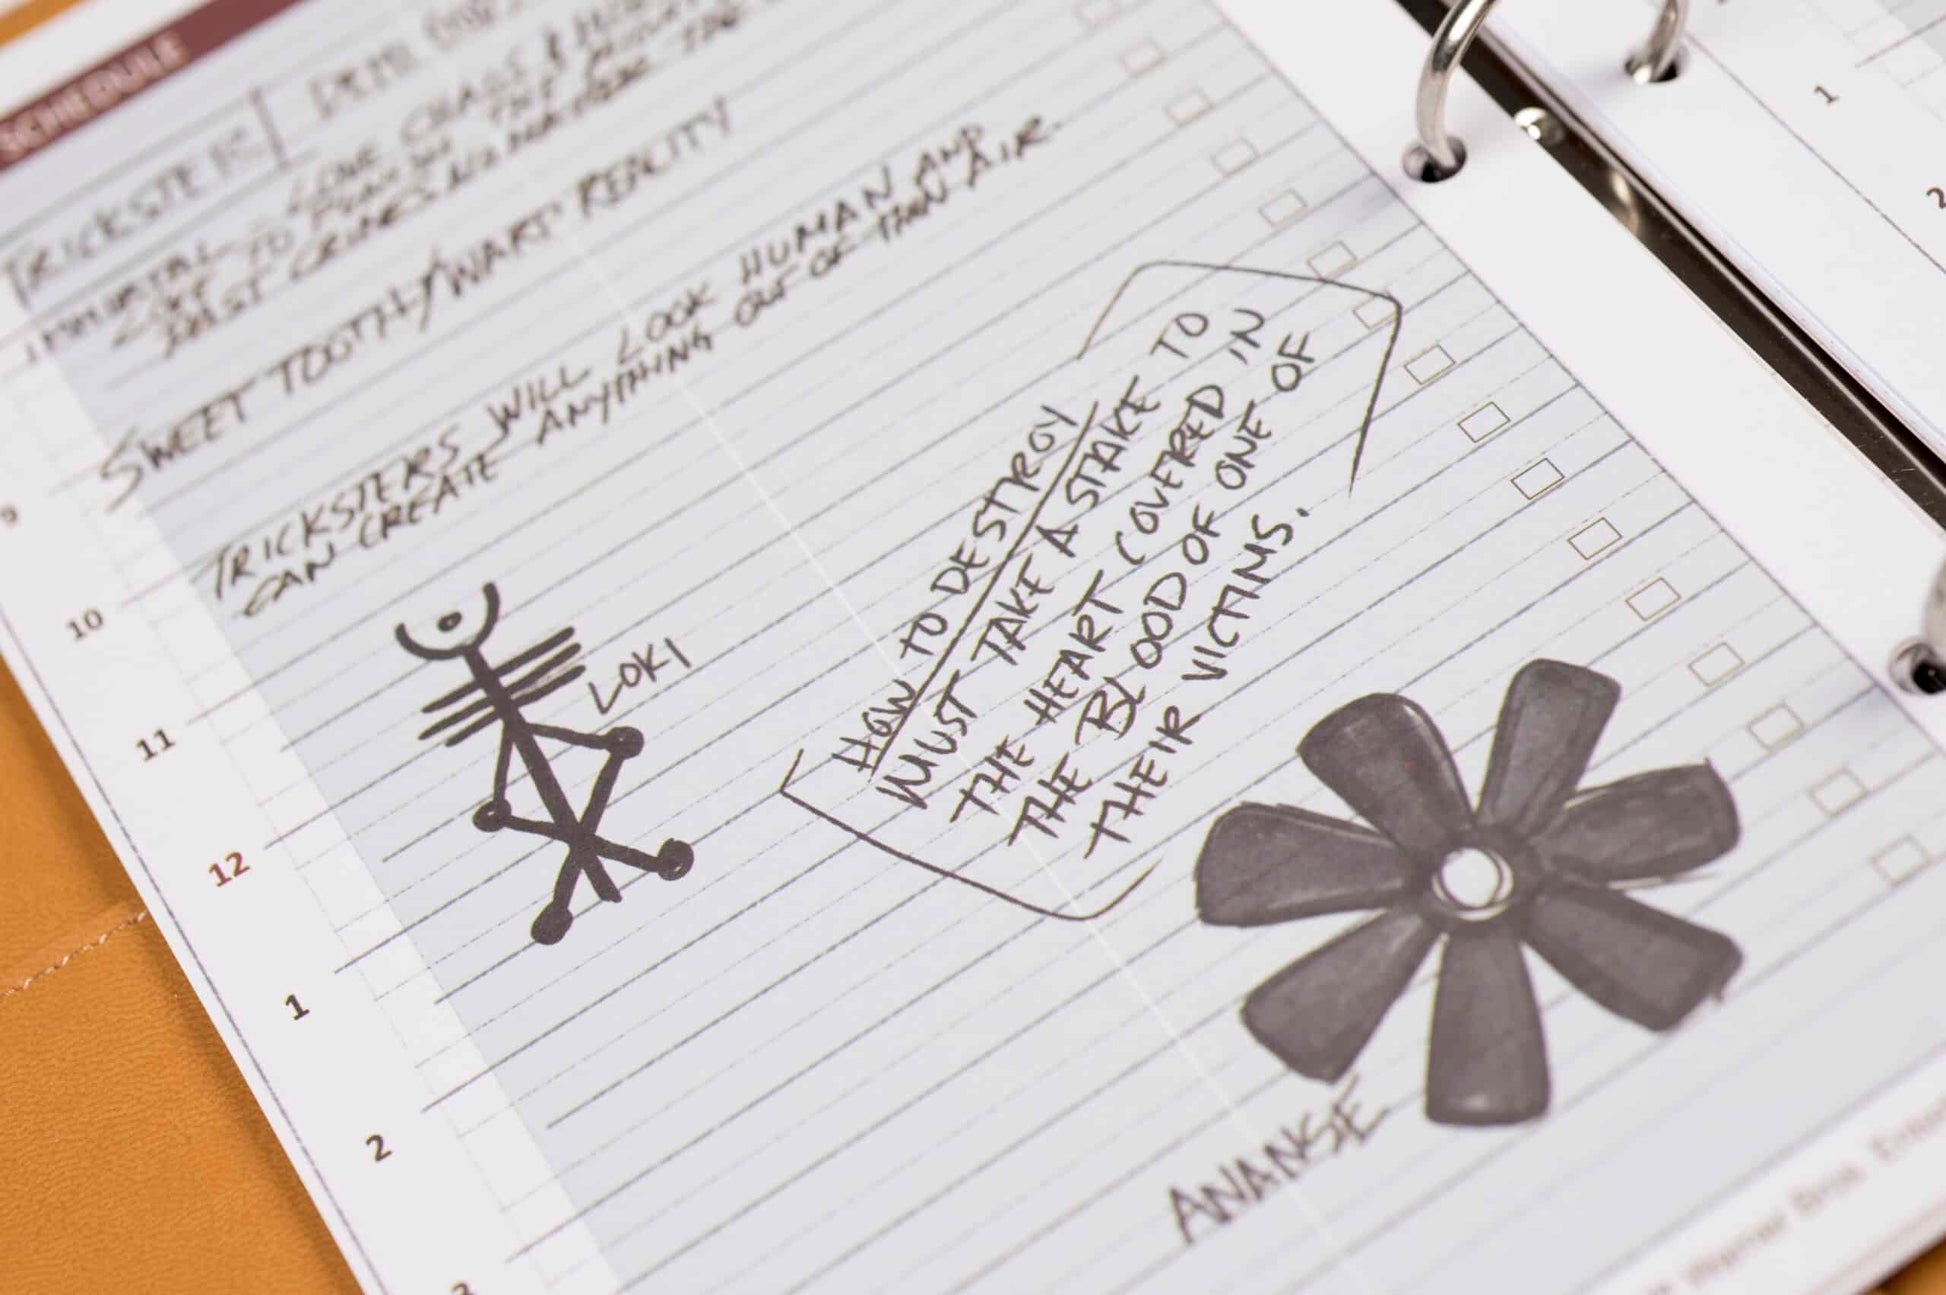 SCHEDULE
TRICKSTER
IMMORTAL - LOVE CHAOS &
LIKE TO PUNISH THE
PAST CRIMES
SWEET TOOTH/WARP REALITY
TRICKSTERS WILL LOOK HUMAN AND
CAN CREATE ANYTHING OUT OF THIN AIR.
LOKI
HOW TO DESTROY
MUST TAKE A STAKE TO
THE HEART COVERED IN
THE BLOOD OF ONE OF
THEIR VICTIMS.
ANANSE
9
10
11
12
1
2
3
1
2
Warner Bros.